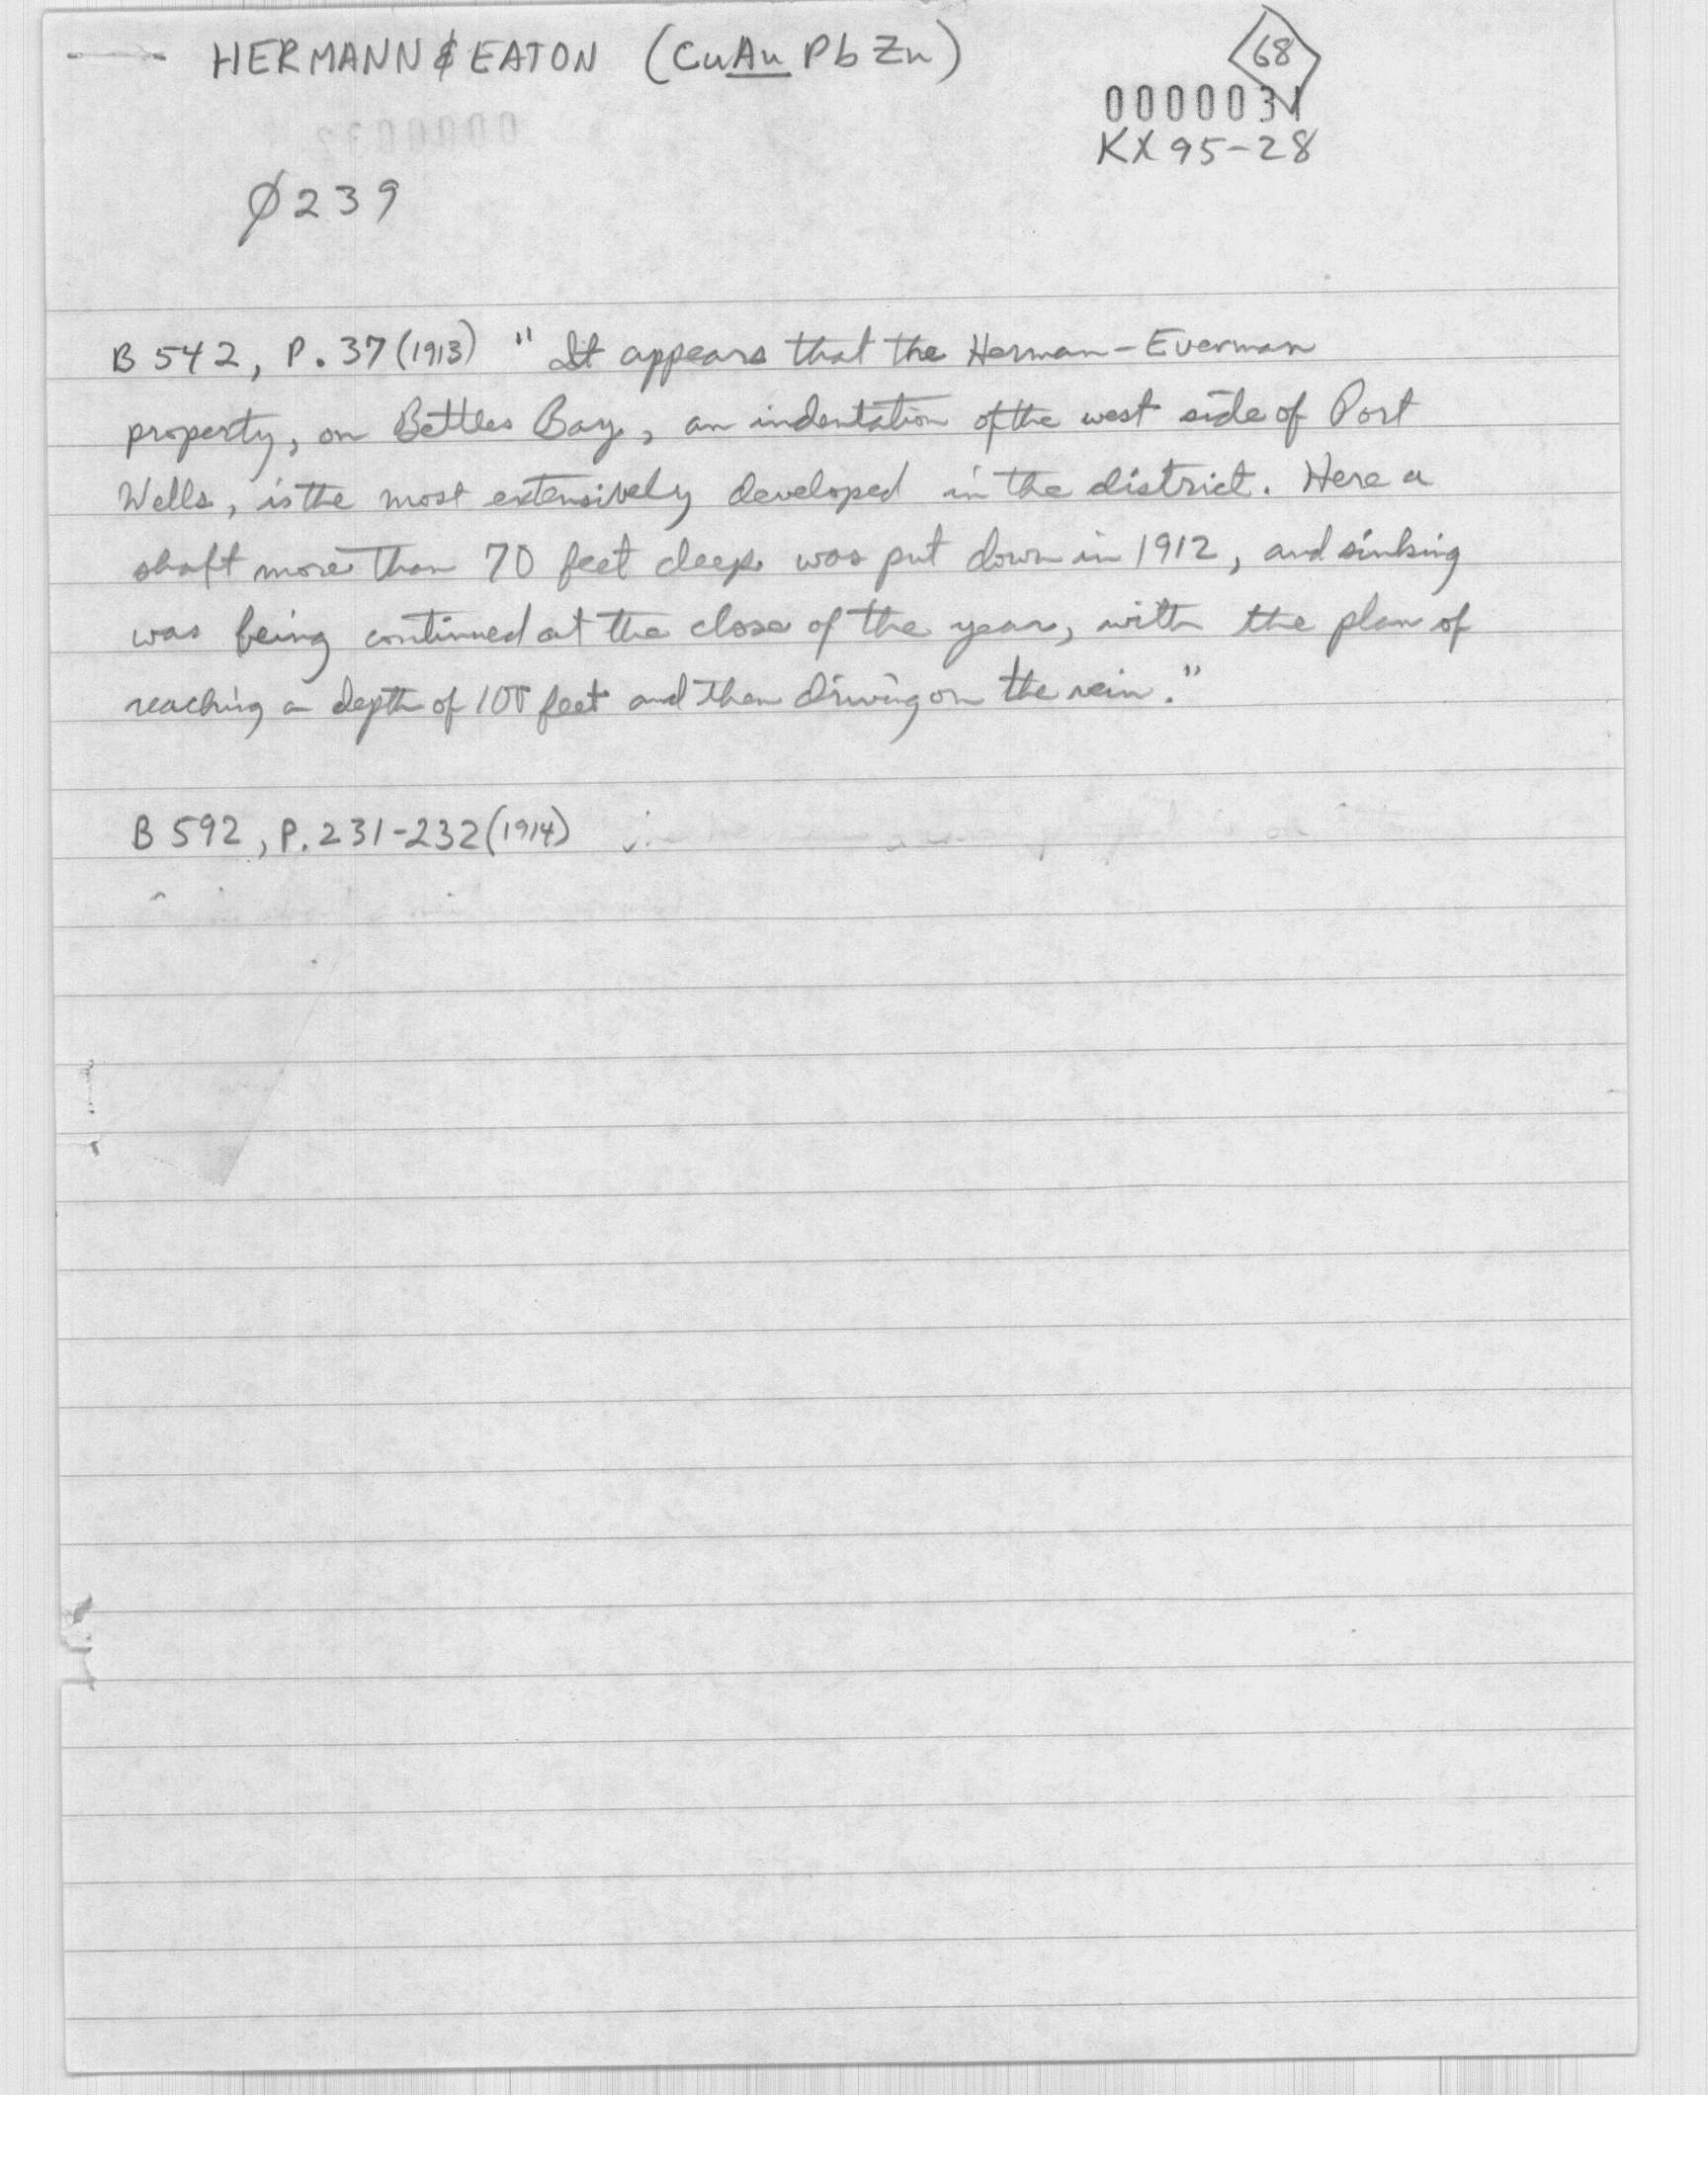 HERMANN & EATON (CuAu Pb Zn)
68
0000031
KX 95-28
Ø239
B 542, P. 37 (1913) " It appears that the Herman-Everman
property, on Bettles Bay, an indentation of the west side of Port
Wells, is the most extensively developed in the district. Here a
shaft more than 70 feet deep was put down in 1912, and sinking
was being continued at the close of the year, with the plan of
reaching a depth of 100 feet and then driving on the vein."
B 592, P. 231-232 (1914)